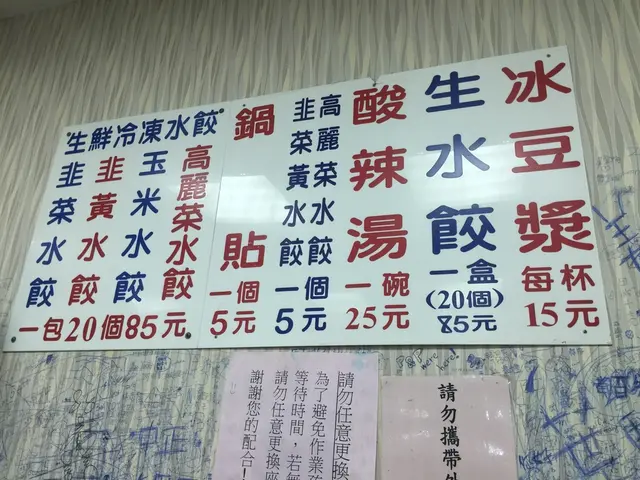 冰豆漿
每杯
15元
生水餃
一盒
(20個)
85元
酸辣湯
一碗
25元
高麗菜水餃
韭菜黃水餃
一個
5元
鍋貼
一個
5元
生鮮冷凍水餃
高麗菜水餃
玉米水餃
韭黃水餃
韭菜水餃
一包20個85元
請勿攜帶外
請勿任意更換
為了避免作業
等待時間，若無
請勿任意更換座
謝謝您的配合！